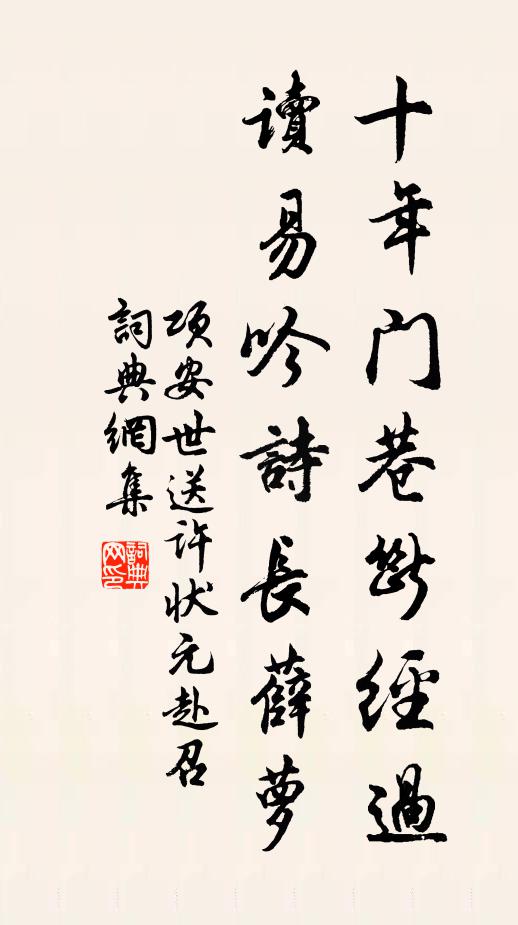 十年门巷斷經過
讀易吟詩長薜萝
項安世送許状元赴召
詞典網集
詞典网印